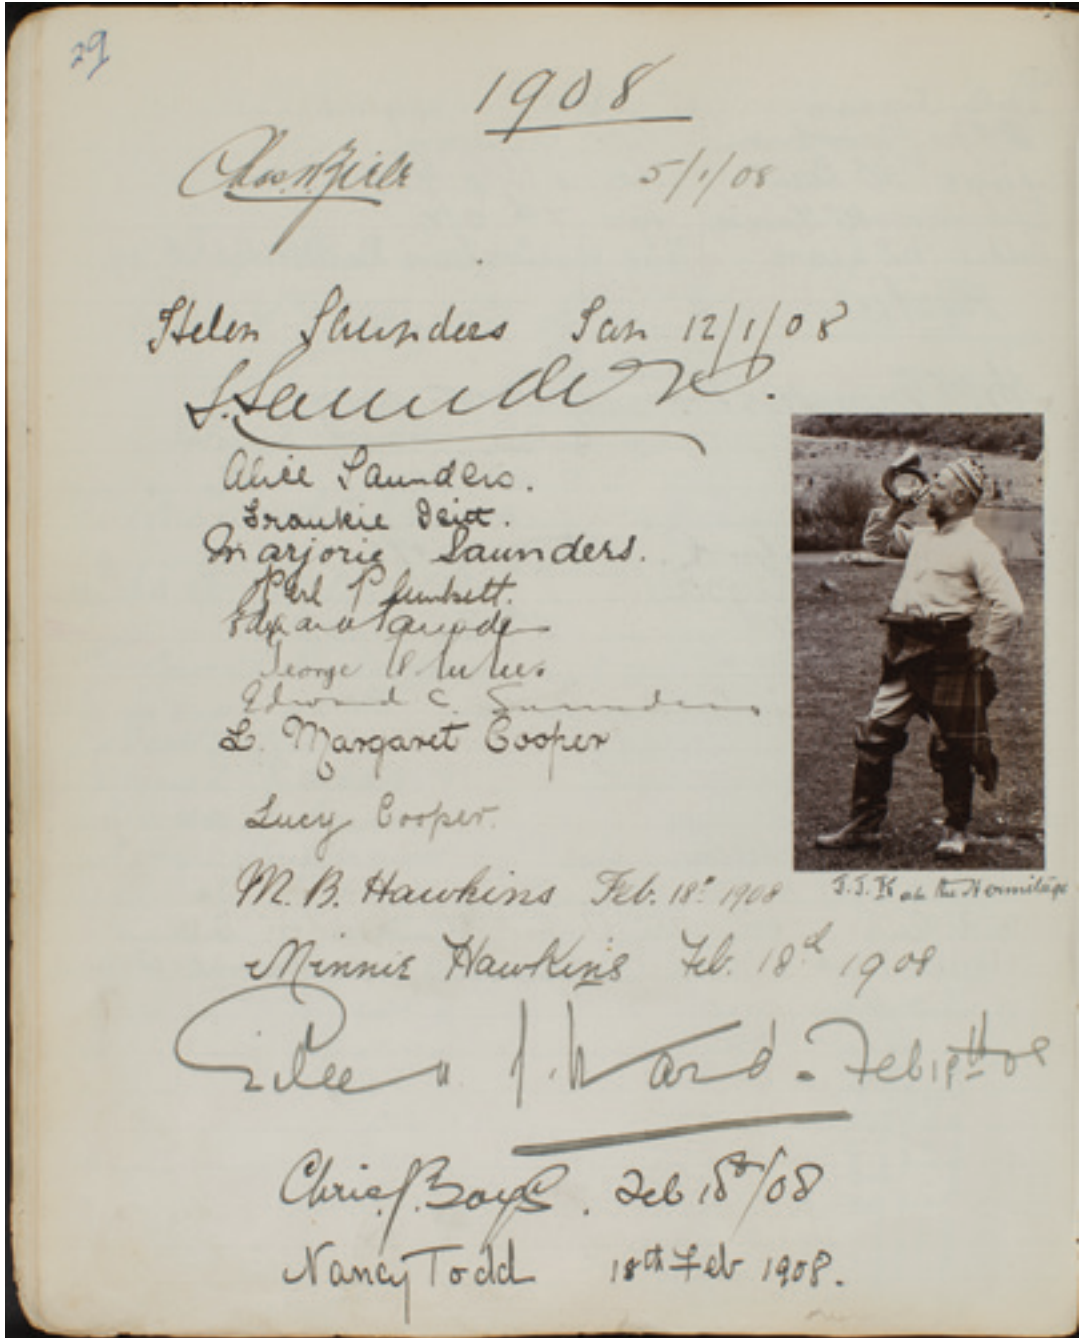 29
1908
5/1/08
Helen Saunders Jan 12/1/08
S. Saunders.
Alice Saunders.
Frankie
Marjorie Saunders.
Plunkett.
George
Edward C. Saunders
L. Margaret Cooper
Lucy Cooper.
M. B. Hawkins Feb. 18th 1908
J.J.K at the Hermitage
Minnie Hawkins Feb. 18th 1908
Eileen J. Ward. Feb 18th 08
Chris J. Boys. Feb 18th/08
Nancy Todd 18th Feb 1908.